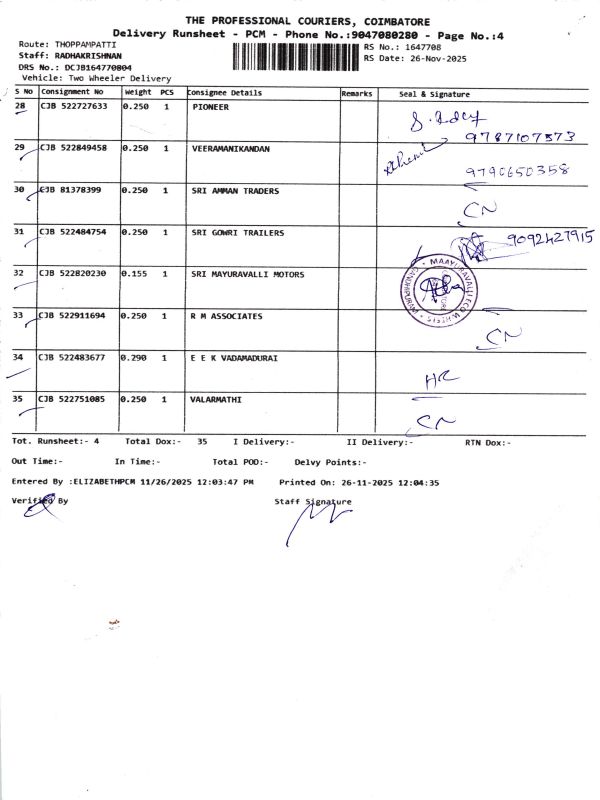 THE PROFESSIONAL COURIERS, COIMBATORE
Delivery Runsheet - PCM - Phone No.:9047080280 - Page No.:4
Route: THOPPAMPATTI
RS No.: 1647708
Staff: RADHAKRISHNAN
RS Date: 26-Nov-2025
DRS No.: DCJB164770804
Vehicle: Two Wheeler Delivery
S No Consignment No Weight PCS Consignee Details Remarks Seal & Signature
28 CJB 522727633 0.250 1 PIONEER
9787107573
29 CJB 522849458 0.250 1 VEERAMANIKANDAN
9790650358
30 CJB 81378399 0.250 1 SRI AMMAN TRADERS
CN
31 CJB 522484754 0.250 1 SRI GOWRI TRAILERS 9092427915
32 CJB 522820230 0.155 1 SRI MAYURAVALLI MOTORS
33 CJB 522911694 0.250 1 R M ASSOCIATES
CN
34 CJB 522483677 0.290 1 E E K VADAMADURAI
HR
35 CJB 522751085 0.250 1 VALARMATHI
CN
Tot. Runsheet:- 4 Total Dox:- 35 I Delivery:- II Delivery:- RTN Dox:-
Out Time:- In Time:- Total POD:- Delvy Points:-
Entered By :ELIZABETHPCM 11/26/2025 12:03:47 PM Printed On: 26-11-2025 12:04:35
Verified By Staff Signature